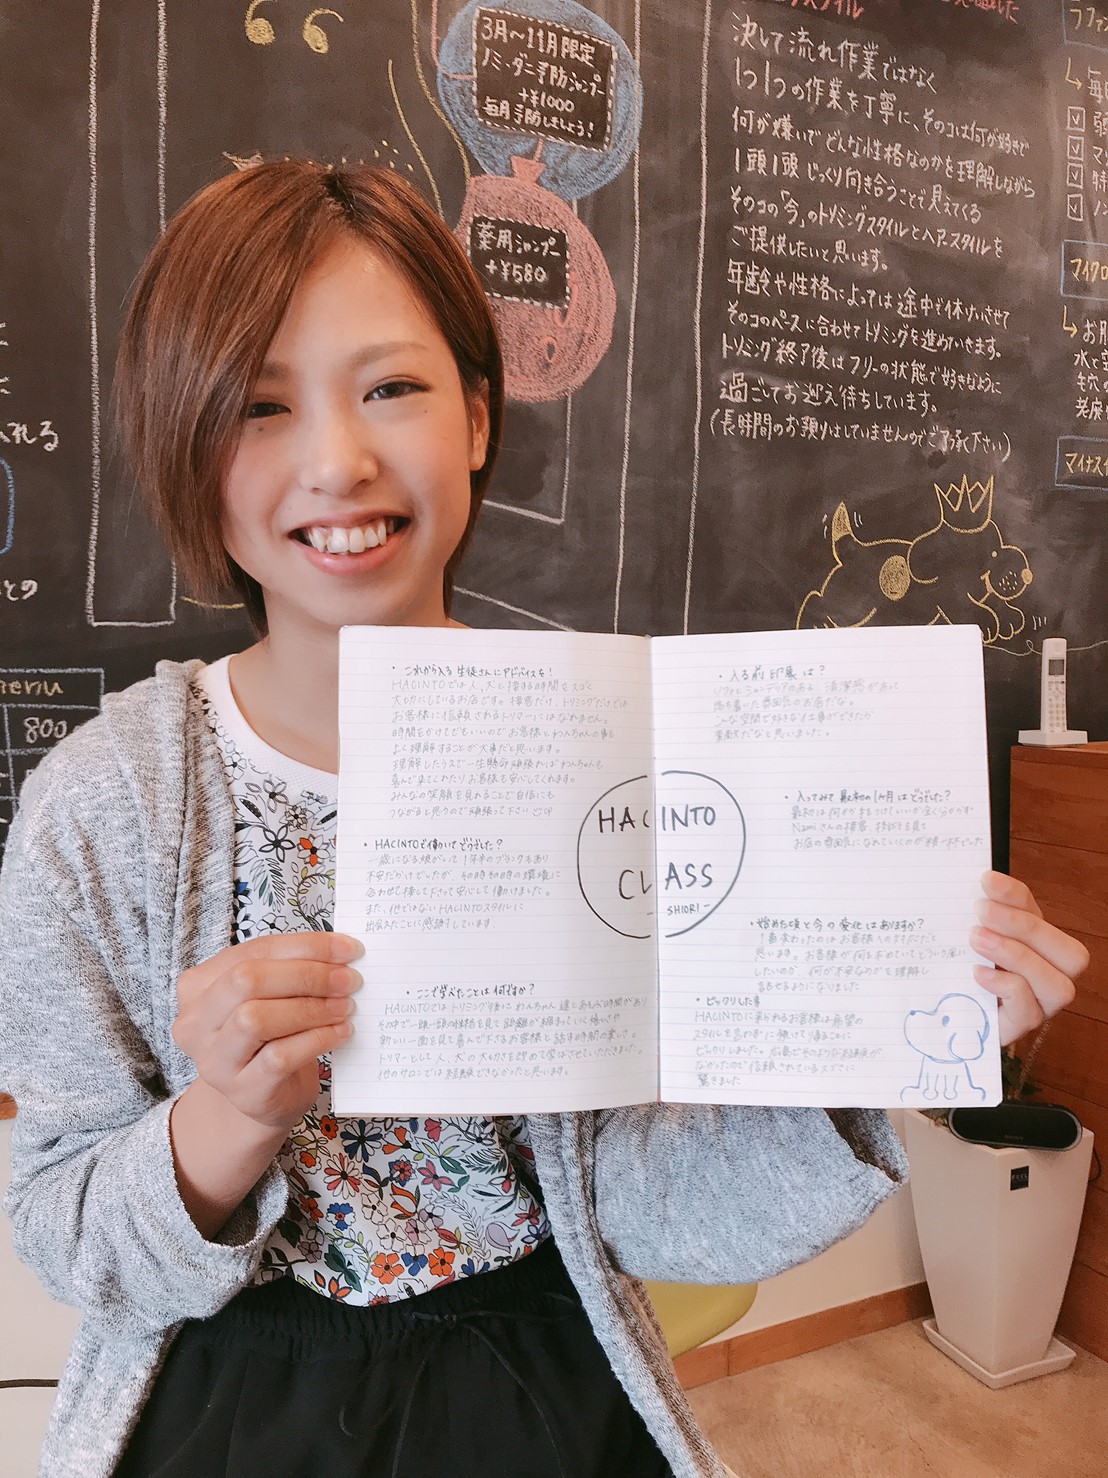 3月〜11月限定
ノミ・ダニ予防シャンプー
+¥1000
毎月予防しましょう!
薬用シャンプー
+¥580
スタイル
決して流れ作業ではなく
1つ1つの作業を丁寧に、そのコは何が好きで
何が嫌いでどんな性格なのかを理解しながら
1頭1頭じっくり向き合うことで見えてくる
そのコの「今」のトリミングスタイルとヘアースタイルを
ご提供したいと思います。
年齢や性格によっては途中で休けいさせて
そのコのペースに合わせてトリミングを進めていきます。
トリミング終了後はフリーの状態で好きなように
過ごしてお迎え待ちしています。
(長時間のお預りはしていませんのでご了承下さい)
毎
マイクロ
お肌
水と
マイナス
れる
との
menu
800
・これから入る生徒さんにアドバイスを!
HACINTOでは人、犬と接する時間をスゴく
大切にしているお店です。接客だけ、トリミングだけでは
お客様に信頼されるトリマーにはなれません。
時間をかけてでもいいのでお客様とわんちゃんの事を
よく理解することが大事だと思います。
理解したうえで一生懸命頑張ればわんちゃんも
喜んで来てくれたりお客様も安心してくれます。
みんなの笑顔を見れることで自信にも
つながると思うので頑張って下さい
・HACINTOで働いてどうでした?
一歳になる娘がいて1年半のブランクもあり
不安だかけでしたが、その時その時の環境に
合わせて接して下さって安心して働けました。
また、他ではないHACINTOスタイルに
出会えたことに感謝しています
・ここで学べたことは何ですか?
HACINTOではトリミング後に わんちゃん達とあそぶ時間があり
その中で一頭一頭の性格を見て距離が縮まっていく嬉しさや
新しい一面を見て喜んで下さるお客様と話す時間の楽しさ。
トリマーとして人、犬の大切さを改めて学ばせていただきました。
他のサロンでは経験できなかったと思います。
HACINTO
CLASS
- SHIORI -
・入る前印象は?
清潔感があって
落ち着いた雰囲気のお店だな。
こんな空間で好きな仕事ができたら
素敵だなと思いました。
・入ってみて最初の1ヶ月はどうでした?
最初は何から手をつけていいか全く分からず
Namiさんの接客、技術を見て
お店の雰囲気になれていくのが精一杯でした
・始めた頃と今の変化はありますか?
1番変わったのはお客様への対応だと
思います。お客様が何を求めていてどういう風に
したいのか、何が不安なのかを理解し
話せるようになりました
・ビックリした事
HACINTOに来られるお客様は希望の
スタイルを言わずに預けて帰ることに
ビックリしました。
なかったので信頼されているスゴさに
驚きました